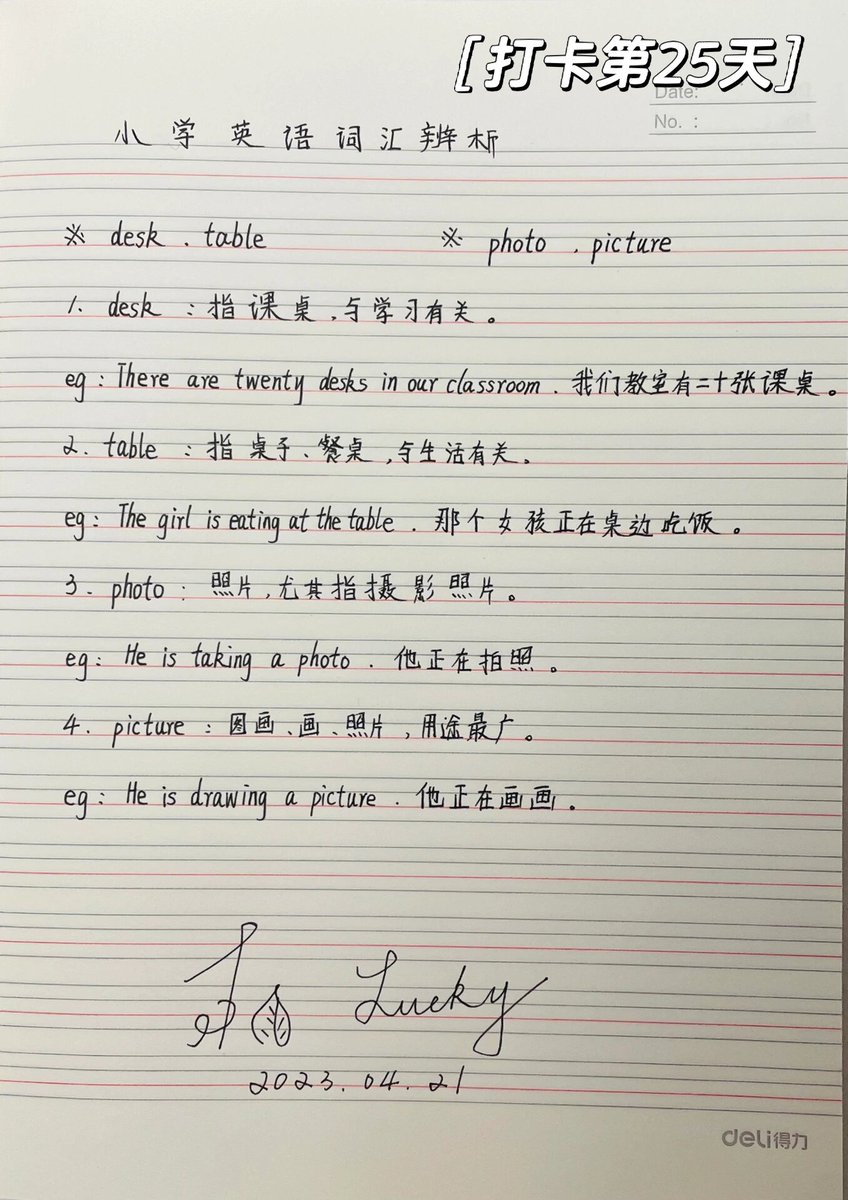 [打卡第25天]
Date:
No. :
小学英语词汇辨析
※ desk . table ※ photo . picture
1. desk : 指课桌,与学习有关。
eg : There are twenty desks in our classroom . 我们教室有二十张课桌。
2. table : 指桌子、餐桌,与生活有关。
eg : The girl is eating at the table . 那个女孩正在桌边吃饭。
3. photo : 照片,尤其指摄影照片。
eg : He is taking a photo . 他正在拍照。
4. picture : 图画、画、照片,用途最广。
eg : He is drawing a picture . 他正在画画.
Lucky
2023.04.21
deli得力